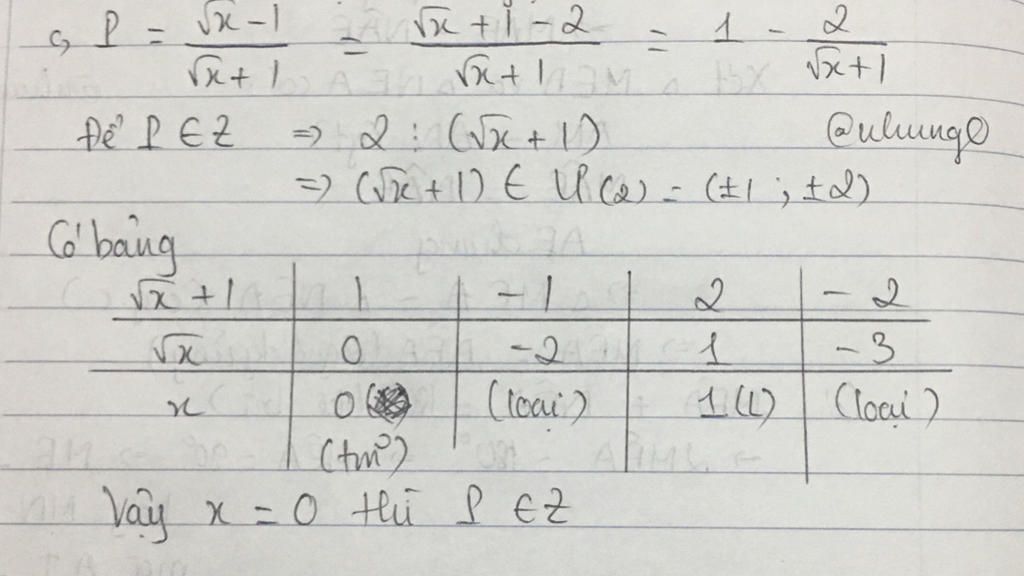 c, P = \frac{\sqrt{x}-1}{\sqrt{x}+1} = \frac{\sqrt{x}+1-2}{\sqrt{x}+1} = 1 - \frac{2}{\sqrt{x}+1}
Để P ∈ Z ⇒ 2 ⋮ (√x + 1) @nhung
⇒ (√x + 1) ∈ Ư(2) = (±1 ; ±2)
Có bảng
√x + 1 | 1 | -1 | 2 | -2
√x | 0 | -2 | 1 | -3
x | 0 | (loại) | 1 (L) | (loại)
(tm²)
Vậy x = 0 thì P ∈ Z